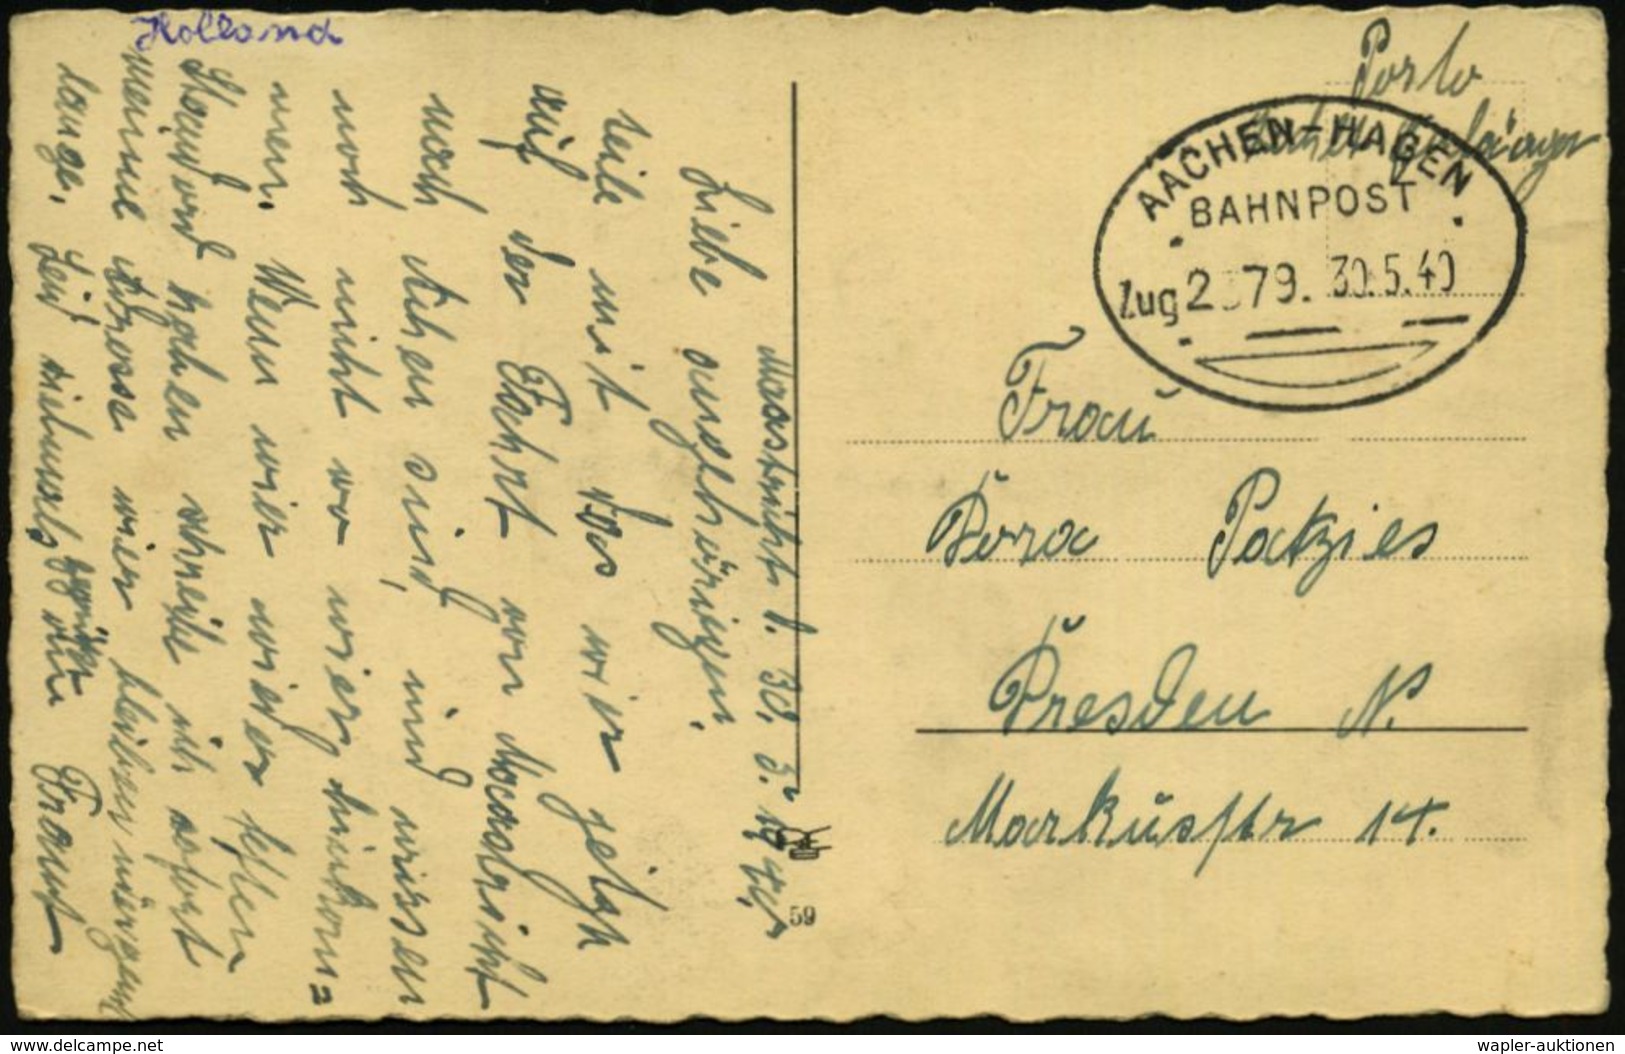 Holland
Maastricht d. 30. 5. 40
Liebe Angehörigen!
teile mit das wir jetzt
auf der Fahrt von Maastricht
nach Achen sind, und wissen
noch nicht wo wier hinkom=
men. Wenn wier wieder festen
Standord haben schreibe ich sofort
meine Adresse wier bleiben nirgens
lange. Seid vielmals gegrüßt von Franz
Porto
Empfänger
AACHEN-HAGEN
BAHNPOST
Zug 2 79. 30.5.40
Frau
Dora Patzies
Dresden N.
Markusstr 14.
59
www.delcampe.net
wapler-auktionen